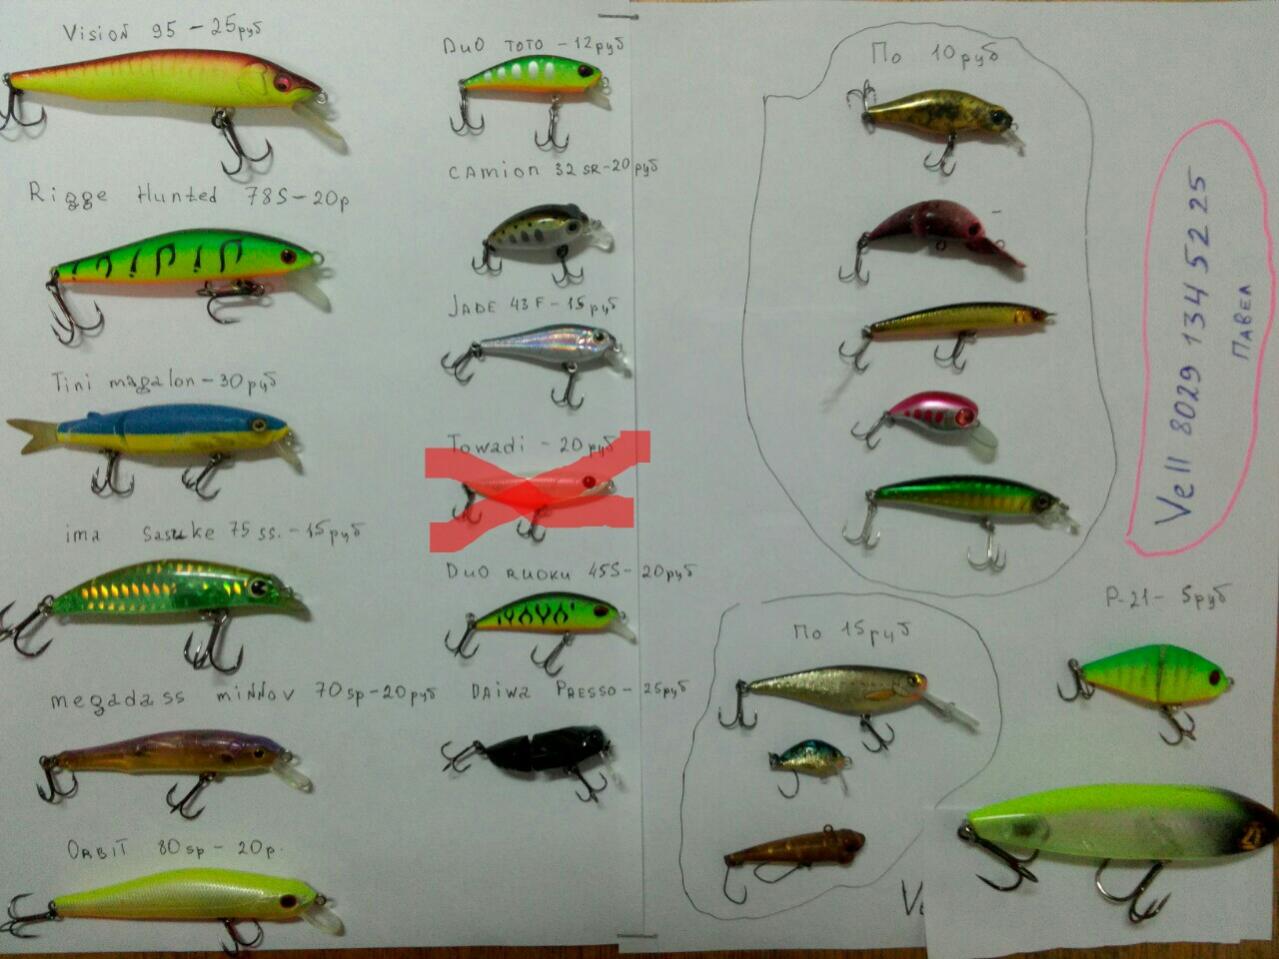 Vision 95 - 25руб
Rigge Hunted 78S - 20р
Tini magalon - 30руб
ima Sasuke 75 ss. - 15руб
megadass minnov 70sp - 20руб
ORBiT 80sp - 20р.
DUO TOTO - 12руб
CAmion 32 SR - 20руб
JADE 43F - 15руб
Towadi - 20руб
DUO RUOKU 45S - 20руб
DAiwa PRESSO - 25руб
По 10руб
По 15руб
Р-21 - 5руб
Vell 8029 134 52 25
ПАВЕЛ